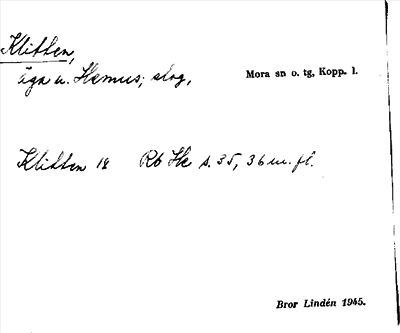 Klitten,
äga u. Hemus; skog,
Mora sn o. tg, Kopp. l.
Klitten 18 Rb Hc s. 35, 36 m. fl.
Bror Lindén 1945.